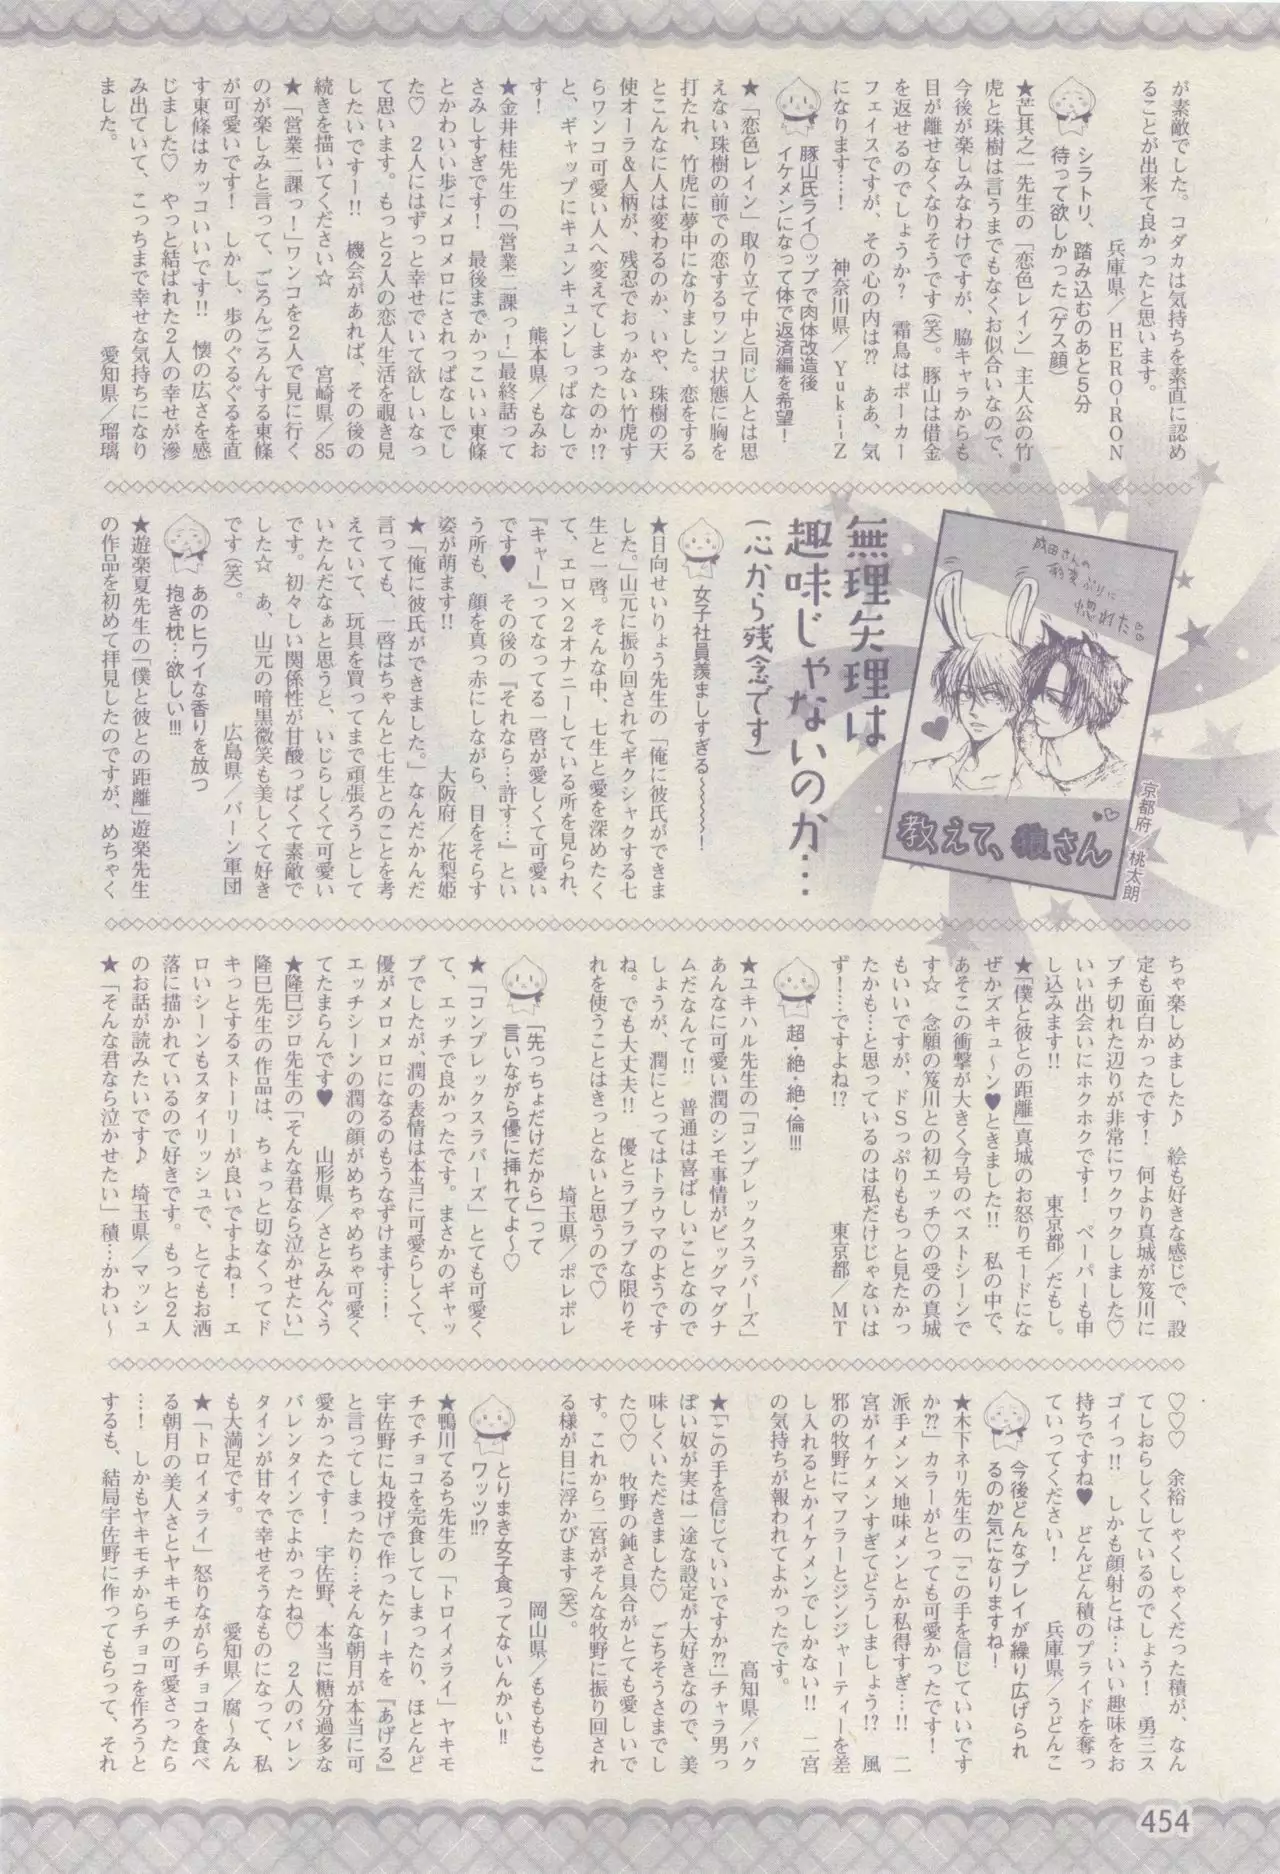 が素敵でした。コダカは気持ちを素直に認め
ることが出来て良かったと思います。
兵庫県／HERO-RON
シラトリ、踏み込むのあと5分
待って欲しかった(ゲス顔)
★芒其之一先生の「恋色レイン」主人公の竹
虎と珠樹は言うまでもなくお似合いなので、
今後が楽しみなわけですが、脇キャラからも
目が離せなくなりそうです(笑)。豚山は借金
を返せるのでしょうか？　霜鳥はポーカー
フェイスですが、その心の内は⁇　ああ、気
になります…！　神奈川県／Yuki-Z
豚山氏ライ〇ップで肉体改造後
イケメンになって体で返済編を希望！
★「恋色レイン」取り立て中と同じ人とは思
えない珠樹の前での恋するワンコ状態に胸を
打たれ、竹虎に夢中になりました。恋をする
とこんなに人は変わるのか、いや、珠樹の天
使オーラ＆人柄が、残忍でおっかない竹虎す
らワンコ可愛い人へ変えてしまったのか⁉
と、ギャップにキュンキュンしっぱなしで
す！　熊本県／もみお
★金井桂先生の「営業二課っ！」最終話って
さみしすぎです！　最後までかっこいい東條
とかわいい歩にメロメロにされっぱなしでし
た♡　2人にはずっと幸せでいて欲しいなっ
て思います。もっと2人の恋人生活を覗き見
したいですー‼　機会があれば、その後の
続きを描いてください☆　宮崎県／85
★「営業二課っ！」ワンコを2人で見に行く
のが楽しみと言って、ごろんごろんする東條
が可愛いです！　しかし、歩のぐるぐるを直
す東條はカッコいいです‼　懐の広さを感
じました♡　やっと結ばれた2人の幸せが滲
み出ていて、こっちまで幸せな気持ちになり
ました。　愛知県／瑠璃
成田さんの
惚れた♡
教えて、
さん
京都府／桃太朗
無理矢理は
趣味じゃないのか…
(心から残念です)
女子社員羨ましすぎる〜〜〜〜〜〜！
★日向せいりょう先生の「俺に彼氏ができま
した。」山元に振り回されてギクシャクする七
生と一啓。そんな中、七生と愛を深めたく
て、エロ×2オナニーしている所を見られ、
『キャー』ってなってる一啓が愛しくて可愛い
です♥　その後の『それなら…許す…』とい
う所も、顔を真っ赤にしながら、目をそらす
姿が萌ます‼　大阪府／花梨姫
★「俺に彼氏ができました。」なんだかんだ
言っても、一啓はちゃんと七生とのことを考
えていて、玩具を買ってまで頑張ろうとして
いたんだなぁと思うと、いじらしくて可愛い
です。初々しい関係性が甘酸っぱくて素敵で
した☆　あ、山元の暗黒微笑も美しくて好き
です(笑)。　広島県／バーン軍団
あのヒワイな香りを放つ
抱き枕…欲しい‼!
★遊楽夏先生の「僕と彼との距離」遊楽先生
の作品を初めて拝見したのですが、めちゃく
ちゃ楽しめました♪　絵も好きな感じで、設
定も面白かったです！　何より真城が笈川に
ブチ切れた辺りが非常にワクワクしました♡
いい出会いにホクホクです！　ペーパーも申
し込みます‼　東京都／だもし。
★「僕と彼との距離」真城のお怒りモードにな
ぜかズキュ〜ン♥ときました‼　私の中で、
あそこの衝撃が大きく今号のベストシーンで
す☆　念願の笈川との初エッチ♡の受の真城
もいいですが、ドSっぷりももっと見たかっ
たかも…と思っているのは私だけじゃないは
ず！…ですよね⁉　東京都／MT
超・絶・絶・倫‼!
★ユキハル先生の「コンプレックスラバーズ」
あんなに可愛い潤のシモ事情がビッグマグナ
ムだなんて‼　普通は喜ばしいことなので
しょうが、潤にとってはトラウマのようです
ね。でも大丈夫‼　優とラブラブな限りそ
れを使うことはきっとないと思うので♡
埼玉県／ポレポレ
「先っちょだけだから」って
言いながら優に挿れてよ〜♡
★「コンプレックスラバーズ」とても可愛く
て、エッチで良かったです。まさかのギャッ
プでしたが、潤の表情は本当に可愛らしくて、
優がメロメロになるのもうなずけます…！
エッチシーンの潤の顔がめちゃめちゃ可愛く
てたまらんです♥　山形県／さとみんぐう
★隆巳ジロ先生の「そんな君なら泣かせたい」
隆巳先生の作品は、ちょっと切なくってド
キっとするストーリーが良いですよね！　エ
ロいシーンもスタイリッシュで、とてもお洒
落に描かれているので好きです。もっと2人
のお話が読みたいです♪　埼玉県／マッシュ
★「そんな君なら泣かせたい」積…かわい〜
♡♡♡　余裕しゃくしゃくだった積が、なん
てしおらしくしているのでしょう！　勇三ス
ゴイっ‼　しかも顔射とは…いい趣味をお
持ちですね♥　どんどん積のプライドを奪っ
ていってください！　兵庫県／うどんこ
今後どんなプレイが繰り広げられ
るのか気になりますね！
★木下ネリ先生の「この手を信じていいです
か⁇」カラーがとっても可愛かったです！
派手メン×地味メンとか私得すぎ…‼　二
宮がイケメンすぎてどうしましょう⁉　風
邪の牧野にマフラーとジンジャーティーを差
し入れるとかイケメンでしかない‼　二宮
の気持ちが報われてよかったです。
高知県／パク
★「この手を信じていいですか⁇」チャラ男っ
ぽい奴が実は一途な設定が大好きなので、美
味しくいただきました♡　ごちそうさまでし
た♡♡　牧野の鈍さ具合がとても愛しいで
す。これから二宮がそんな牧野に振り回され
る様が目に浮かびます(笑)。
岡山県／もももこ
とりまき女子食ってないんかい‼
ワッツ‼?
★鴨川てるち先生の「トロイメライ」ヤキモ
チでチョコを完食してしまったり、ほとんど
宇佐野に丸投げで作ったケーキを『あげる』
と言ってしまったり…そんな朝月が本当に可
愛かったです！　宇佐野、本当に糖分過多な
バレンタインでよかったね♡　2人のバレン
タインが甘々で幸せそうなものになって、私
も大満足です。　愛知県／腐〜みん
★「トロイメライ」怒りながらチョコを食べ
る朝月の美人さとヤキモチの可愛さったら
…！　しかもヤキモチからチョコを作ろうと
するも、結局宇佐野に作ってもらって、それ
454